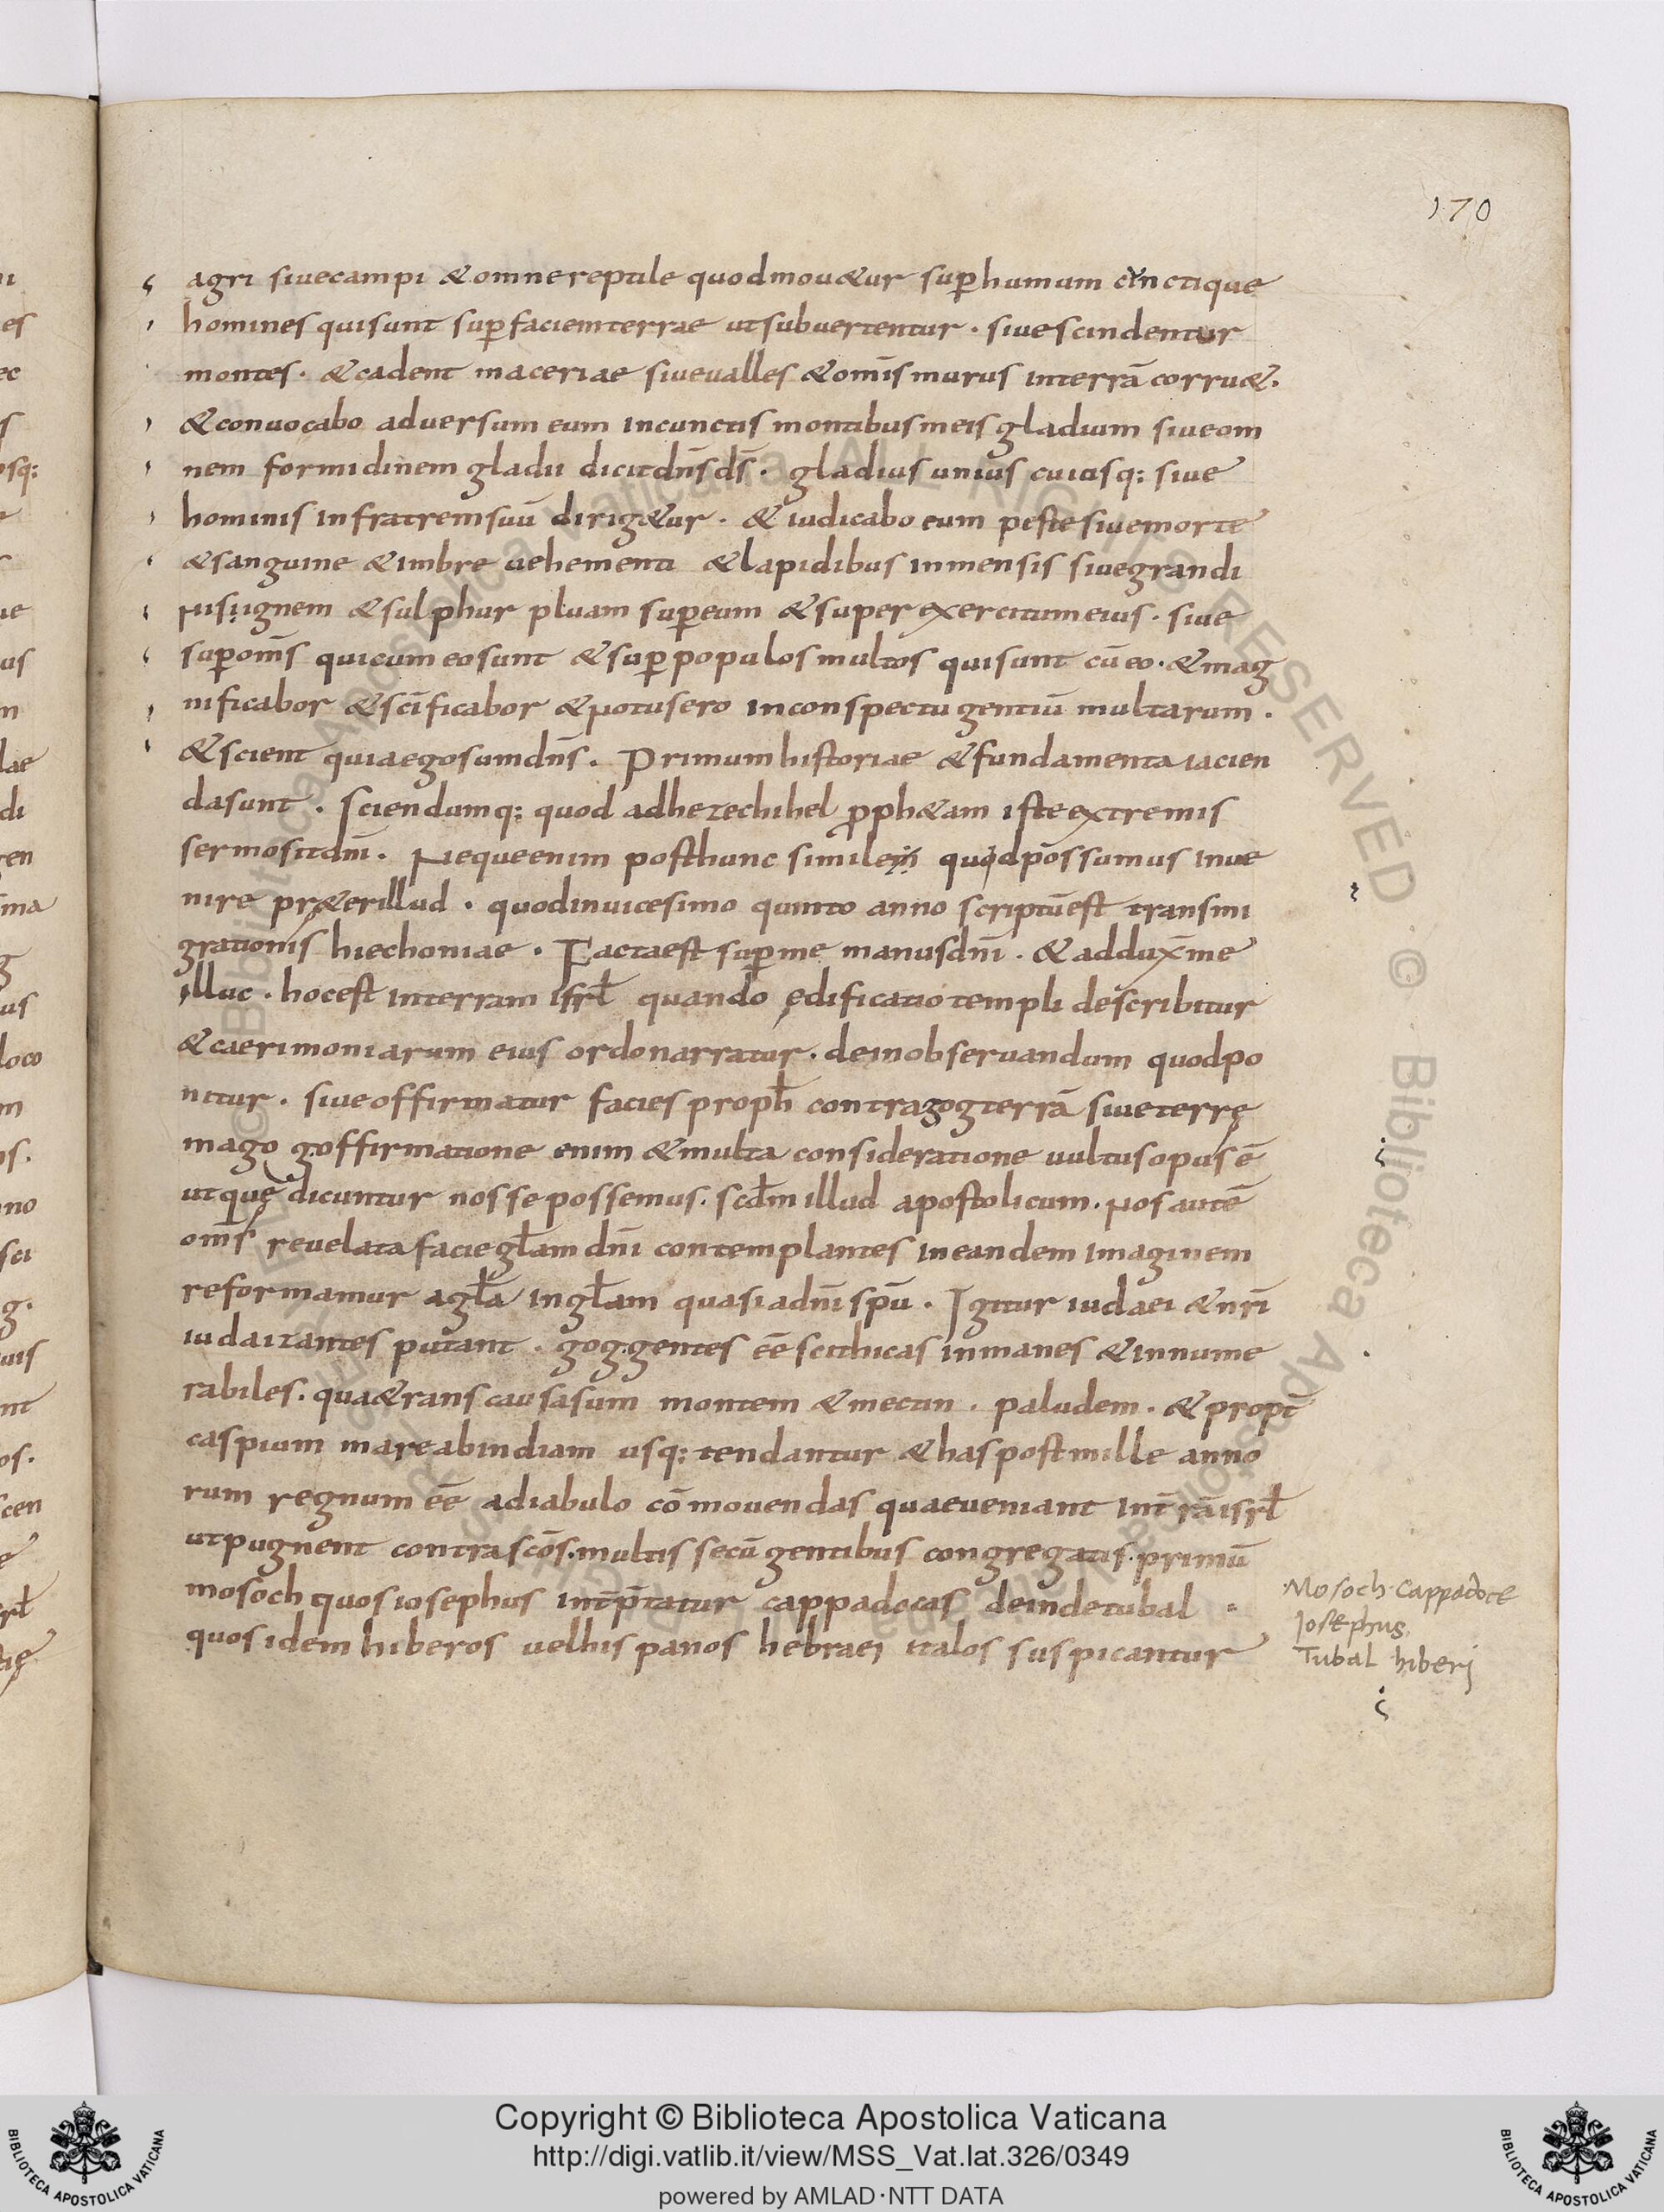 170
agri siuecampi & omnereptile quodmou&ur sup̱humum cunctique
homines quisunt sup̱faciemterrae utsubuertentur · siuescindentur
montes · & cadent maceriae siueualles & omīs murus interrā corru&·
& conuocabo aduersum eum incunctis montibusmeis gladium siueom
nem formidinem gladii dicitdn̄sds̄ · gladius unius cuiusq: siue
hominis infratremsuū dirig&ur · & iudicabo eum peste siuemorte
& sanguine & imbre uehementi & lapidibus inmensis siuegrandi
nis ignem & sulphur pluam sup̱eum & super exercitumeius · siue
sup̱om̄s quicumeosunt & sup̱populosmultos quisunt cū eo · & mag
nificabor & sc̄ificabor & notusero inconspectu gentiū multarum ·
& scient quiaegosumdn̄s · Primumhistoriae & fundamenta iacien
dasunt · Sciendumq: quod adhezechihel p̱ph&am isteextremis
sermositdn̄i · Nequeenim posthunc simile quid possumus inue
nire pr&erillud · quodinuicesimo quinto anno scriptūest transmi
grationis hiechoniae · Factaest sup̱me manusdn̄i · & addux̄me
illuc · hocest interram isrł quando ędificatio templi describitur
& caerimoniarum eius ordonarratur · deinobseruandum quodpo
nitur · siueoffirmatur facies propħ contragogterrā siueterrę
magog offirmatione enim & multa consideratione uultusopus ē
utquę dicuntur nossepossemus · scđm illud apostolicum · Nos autē
om̄s reuelatafaciegłam dn̄i contemplantes ineandem imaginem
reformamur agła ingłam quasi adn̄i spū · Igitur iudaei & nr̄i
iudaizantes putant · gog gentes ēē scithicas inmanes & innume
rabiles · qua&rans caucasum montem & meotin · paludem · & propt̄
caspium mareabindiam usq: tendantur & haspostmille anno
rum regnum ēē adiabulo cōmouendas quaeueniant int̄rāisrł
utpugnent contrascōs · multis secū gentibus congregatis · primū
mosoch quosiosephus int̄p̄tatur cappadocas deindetubal
quosidem hiberos uelhispanos hebraei italos suspicantur
Mosoch · Cappadoce
Josephus
Tubal hiberi
Copyright © Biblioteca Apostolica Vaticana
http://digi.vatlib.it/view/MSS_Vat.lat.326/0349
powered by AMLAD·NTT DATA
BIBLIOTECA APOSTOLICA VATICANA
BIBLIOTECA APOSTOLICA VATICANA